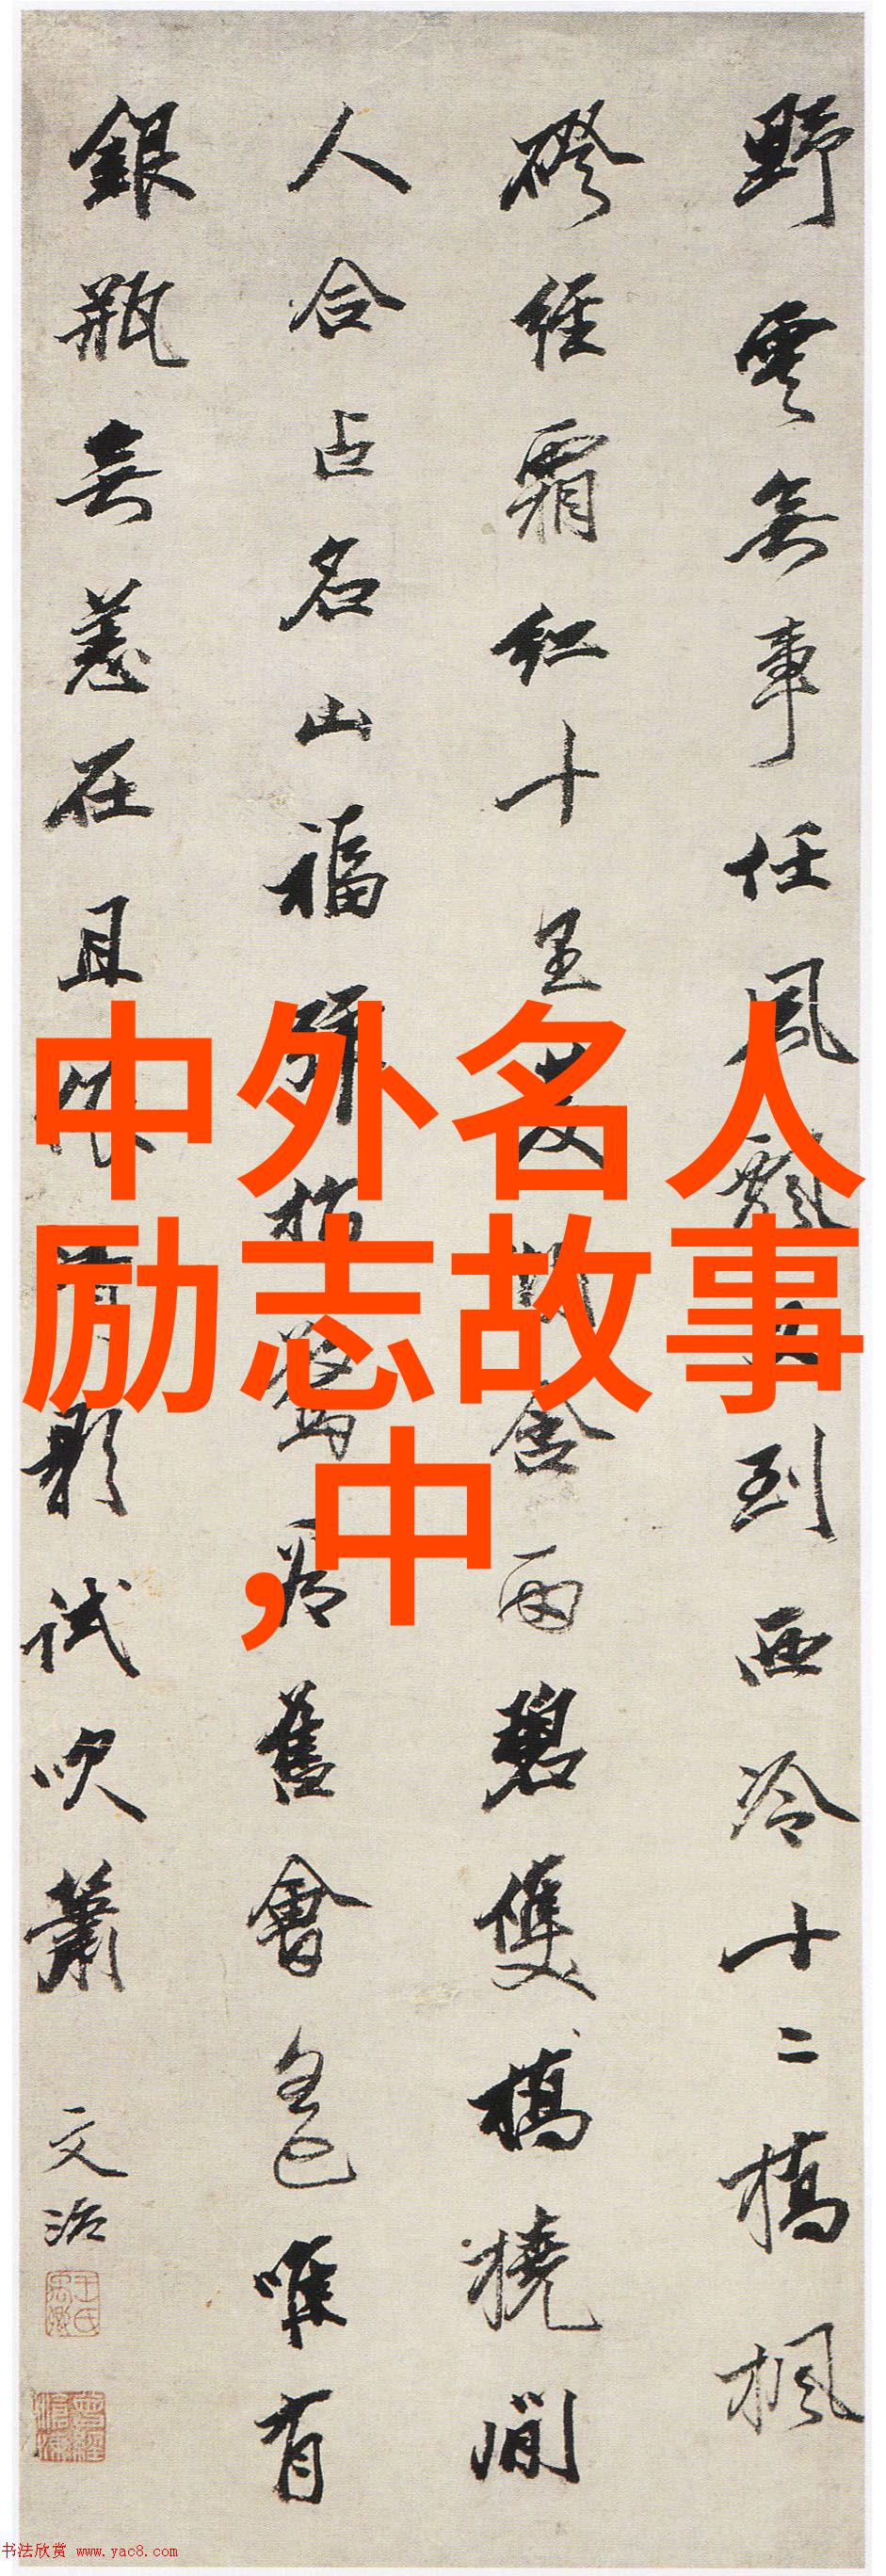 野雲無事任風飄又到西泠十二橋楓
磴經霜紅十里湖含雨碧雙橋橈閒
人合占名山福舊會唯有
銀瓶無恙在且依影試吹簫
文治
中外名人
励志故事
,中
书法欣赏 www.yac8.com